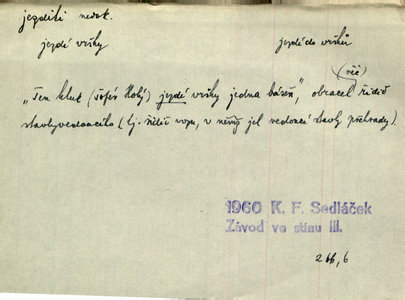 jezditi nedok.
jezdí vršky
jezdí do vršků
(řeč)
„Ten kluk (šofér Holý) jezdí vršky jedna báseň", obracel řidič
stavbyvedoucího (tj. řidič vozu, v němž jel vedoucí stavby přehrady).
1960 K. F. Sedláček
Závod ve stínu III.
266, 6